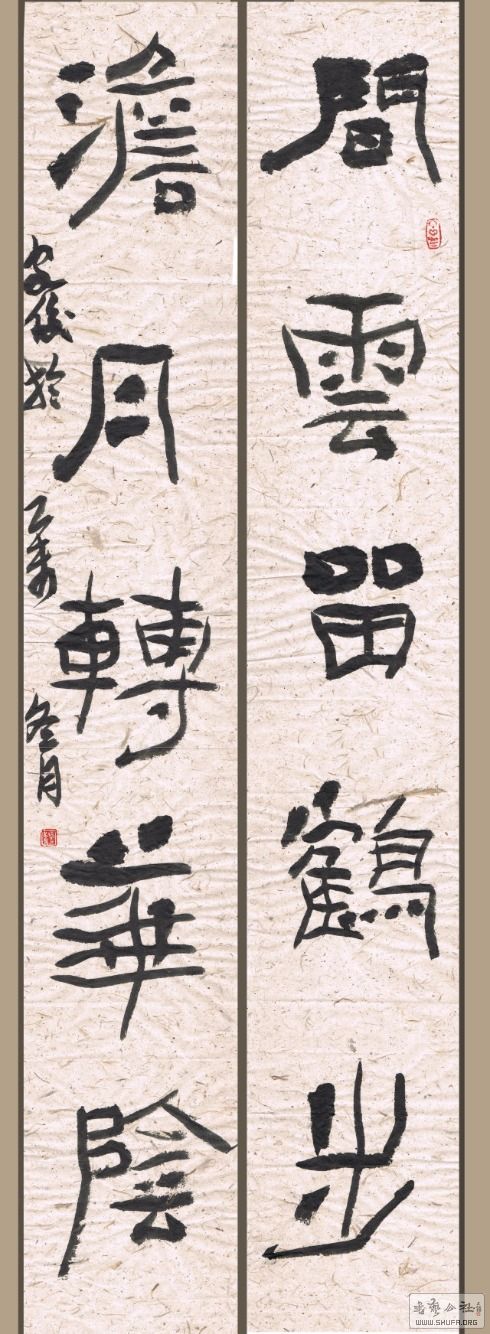 間雲留鶴步
澹月轉華陰
於乙未冬月
书艺公社
WWW.SHUFA.ORG